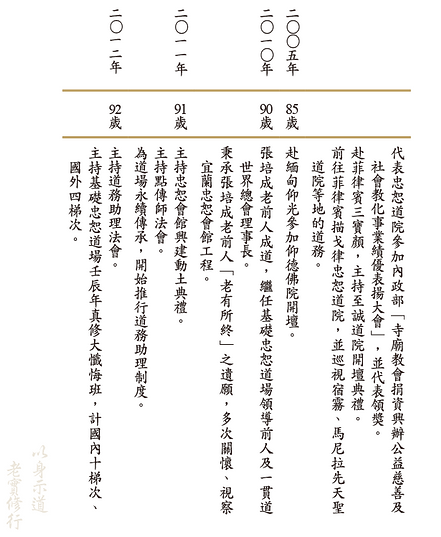 代表忠恕道院參加內政部「寺廟教會捐資興辦公益慈善及
社會教化事業績優表揚大會」，並代表領獎。
赴菲律賓三寶顏，主持至誠道院開壇典禮。
前往菲律賓描戈律忠恕道院，並巡視宿霧、馬尼拉先天聖
道院等地的道務。
二〇〇五年
85歲
赴緬甸仰光參加仰德佛院開壇。
二〇一〇年
90歲
張培成老前人成道，繼任基礎忠恕道場領導前人及一貫道
世界總會理事長。
秉承張培成老前人「老有所終」之遺願，多次關懷、視察
宜蘭忠恕會館工程。
二〇一一年
91歲
主持忠恕會館興建動土典禮。
主持點傳師法會。
為道場永續傳承，開始推行道務助理制度。
二〇一二年
92歲
主持道務助理法會。
主持基礎忠恕道場壬辰年真修大懺悔班，計國內十梯次、
國外四梯次。
以身示道
老實修行